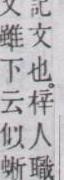 記文也。梓人職
雖下云似蜥